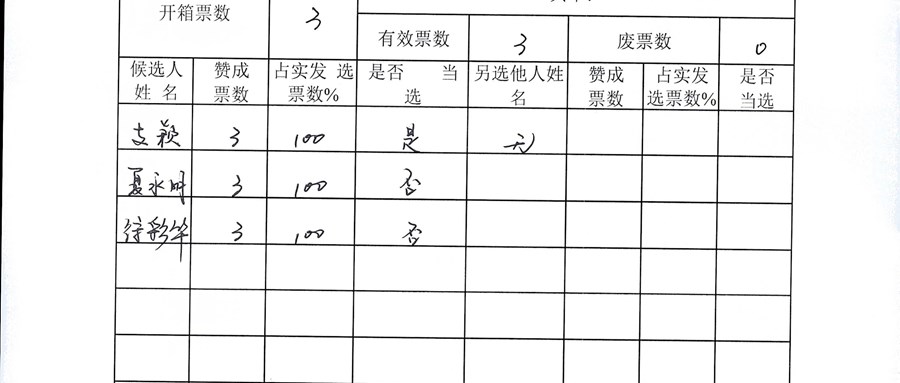 开箱票数 3
有效票数 3 废票数 0
候选人 赞成 占实发 选 是否 当 另选他人姓 赞成 占实发 是否
姓 名 票数 票数% 选 名 票数 选票数% 当选
支颖 3 100 是 无
夏永明 3 100 否
徐彩华 3 100 否